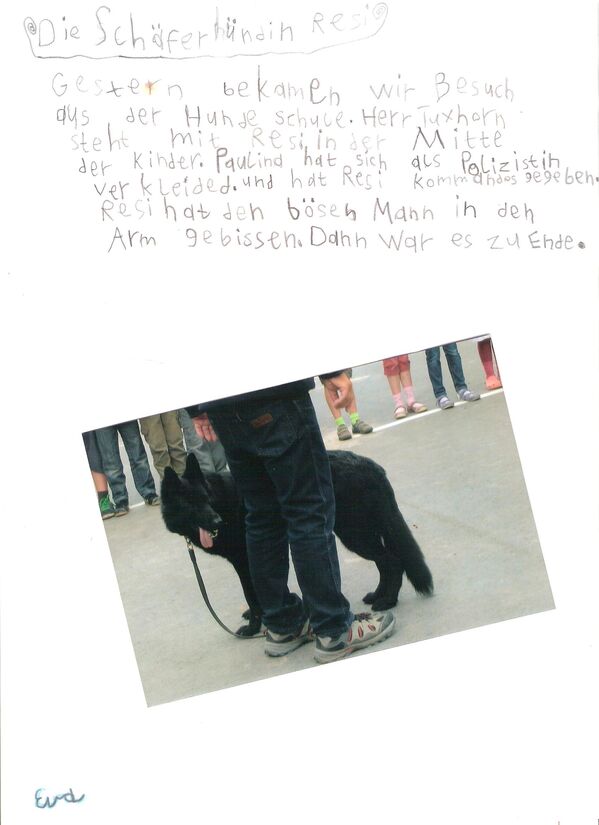 Die Schäferhündin Resi
Gestern bekamen wir Besuch
aus der Hunde schule. Herr Tuxhorn
steht mit Resi in der Mitte
der Kinder. Paulina hat sich als Polizistin
verkleided. und hat Resi kommandos gegeben.
Resi hat den bösen Mann in den
Arm gebissen. Dann war es zu Ende.
Eva